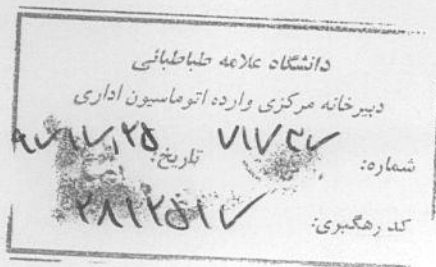 دانشگاه علامه طباطبائی
دبیرخانه مرکزی وارده اتوماسیون اداری
شماره: ۷۱۷۲۷ تاریخ:
کد رهگیری: ۲۸۱۲۵۱۷